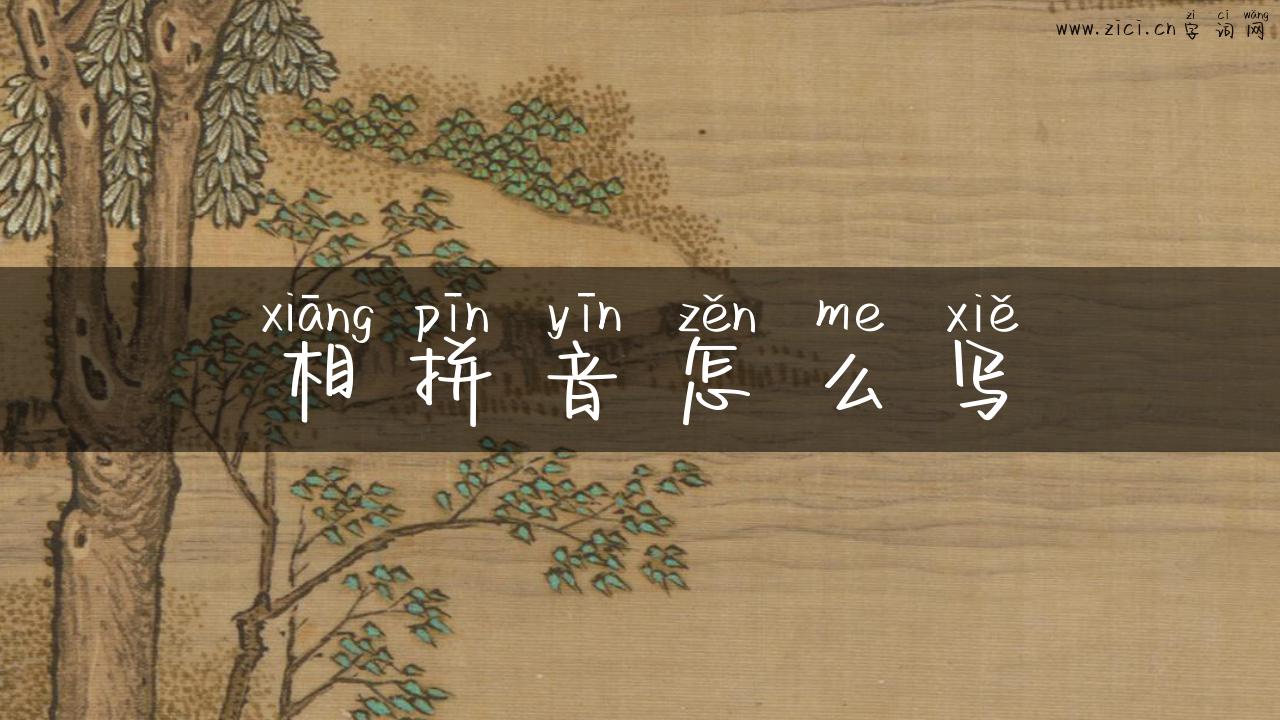 zì cí wǎng
www.zici.cn 字词网
xiāng pīn yīn zěn me xiě
相拼音怎么写